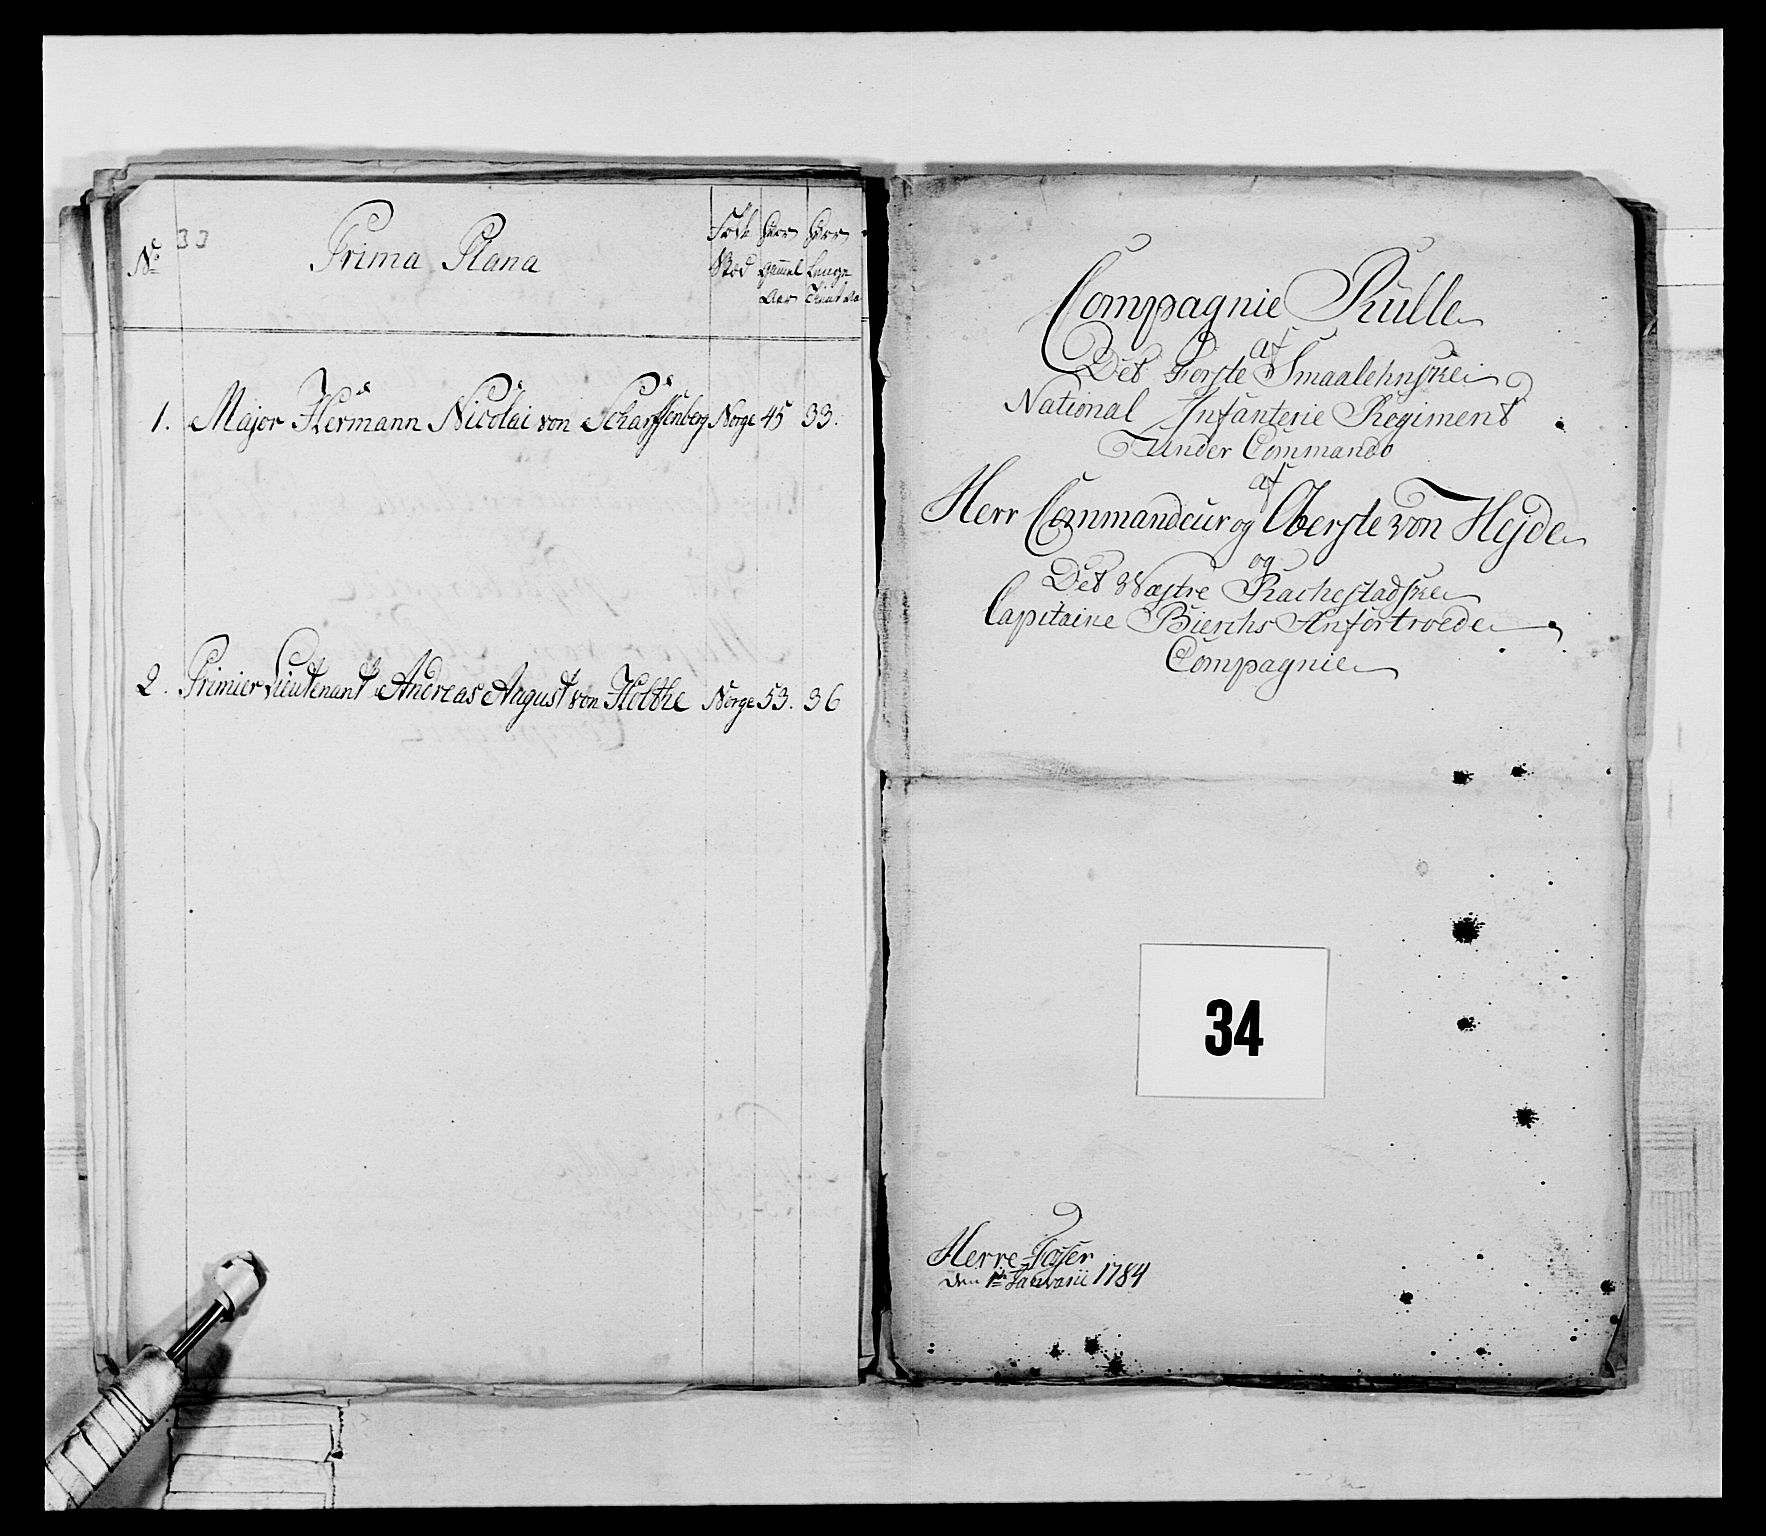 33
No
Prima Plana
Føde Hvor Hvor
Stæd Gammel Længe
Aar Tient
1. Major Herman Nicolai von Scharffenberg Norge 45 33.
2. Primier Lieutenant Andreas August von Holthe Norge 53. 36
Compagnie Rulle
af
Det Første Smaalehnske
National Infanterie Regiment
under Commando
af
Herr Commandeur og Oberste von Hejde
og
Det Wæstre Rachestadske
Capitaine Bierchs Anfortroede
Compagnie
34
Herre Foss
den 1te Januarii 1784